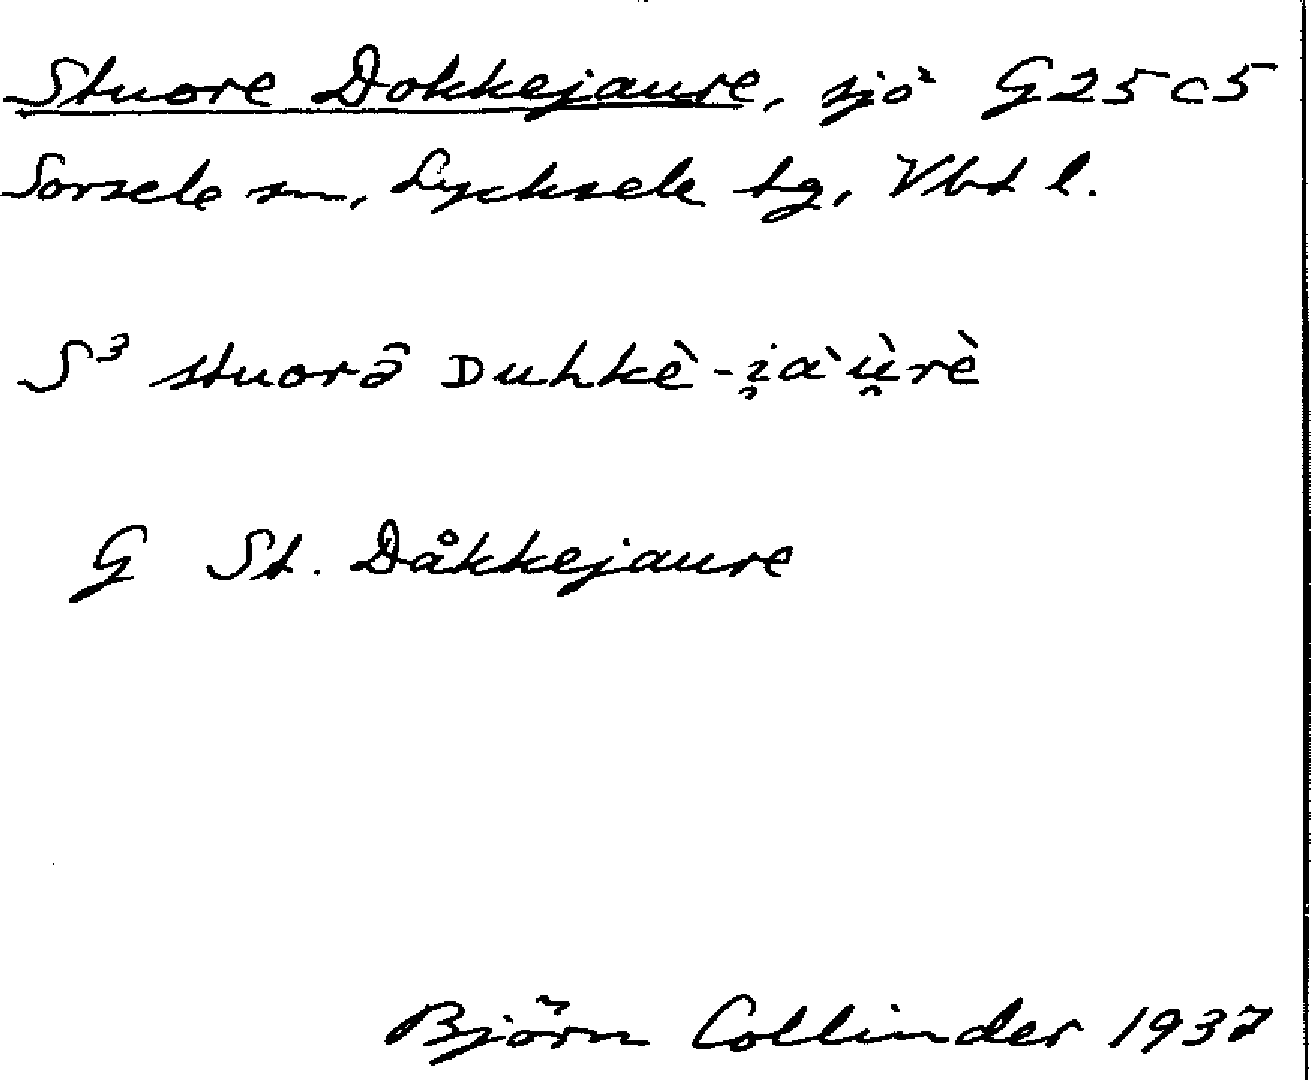 Stuore Dokkejaure, sjö G25c5
Sorsele sn, Lycksele tg, Vbt l.
S³ stuorɔ̂ ᴅuhkè-i̯àu̯̇̀rè
G St. Dåkkejaure
Björn Collinder 1937